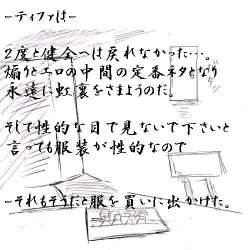 -ティファは-
2度と健全へは戻れなかった…。
煽りとエロの中間の定番ネタとなり
永遠に虹裏をさまようのだ。
そして性的な目で見ないで下さいと
言っても服装が性的なので
-それもそうだと服を買いに出かけた。